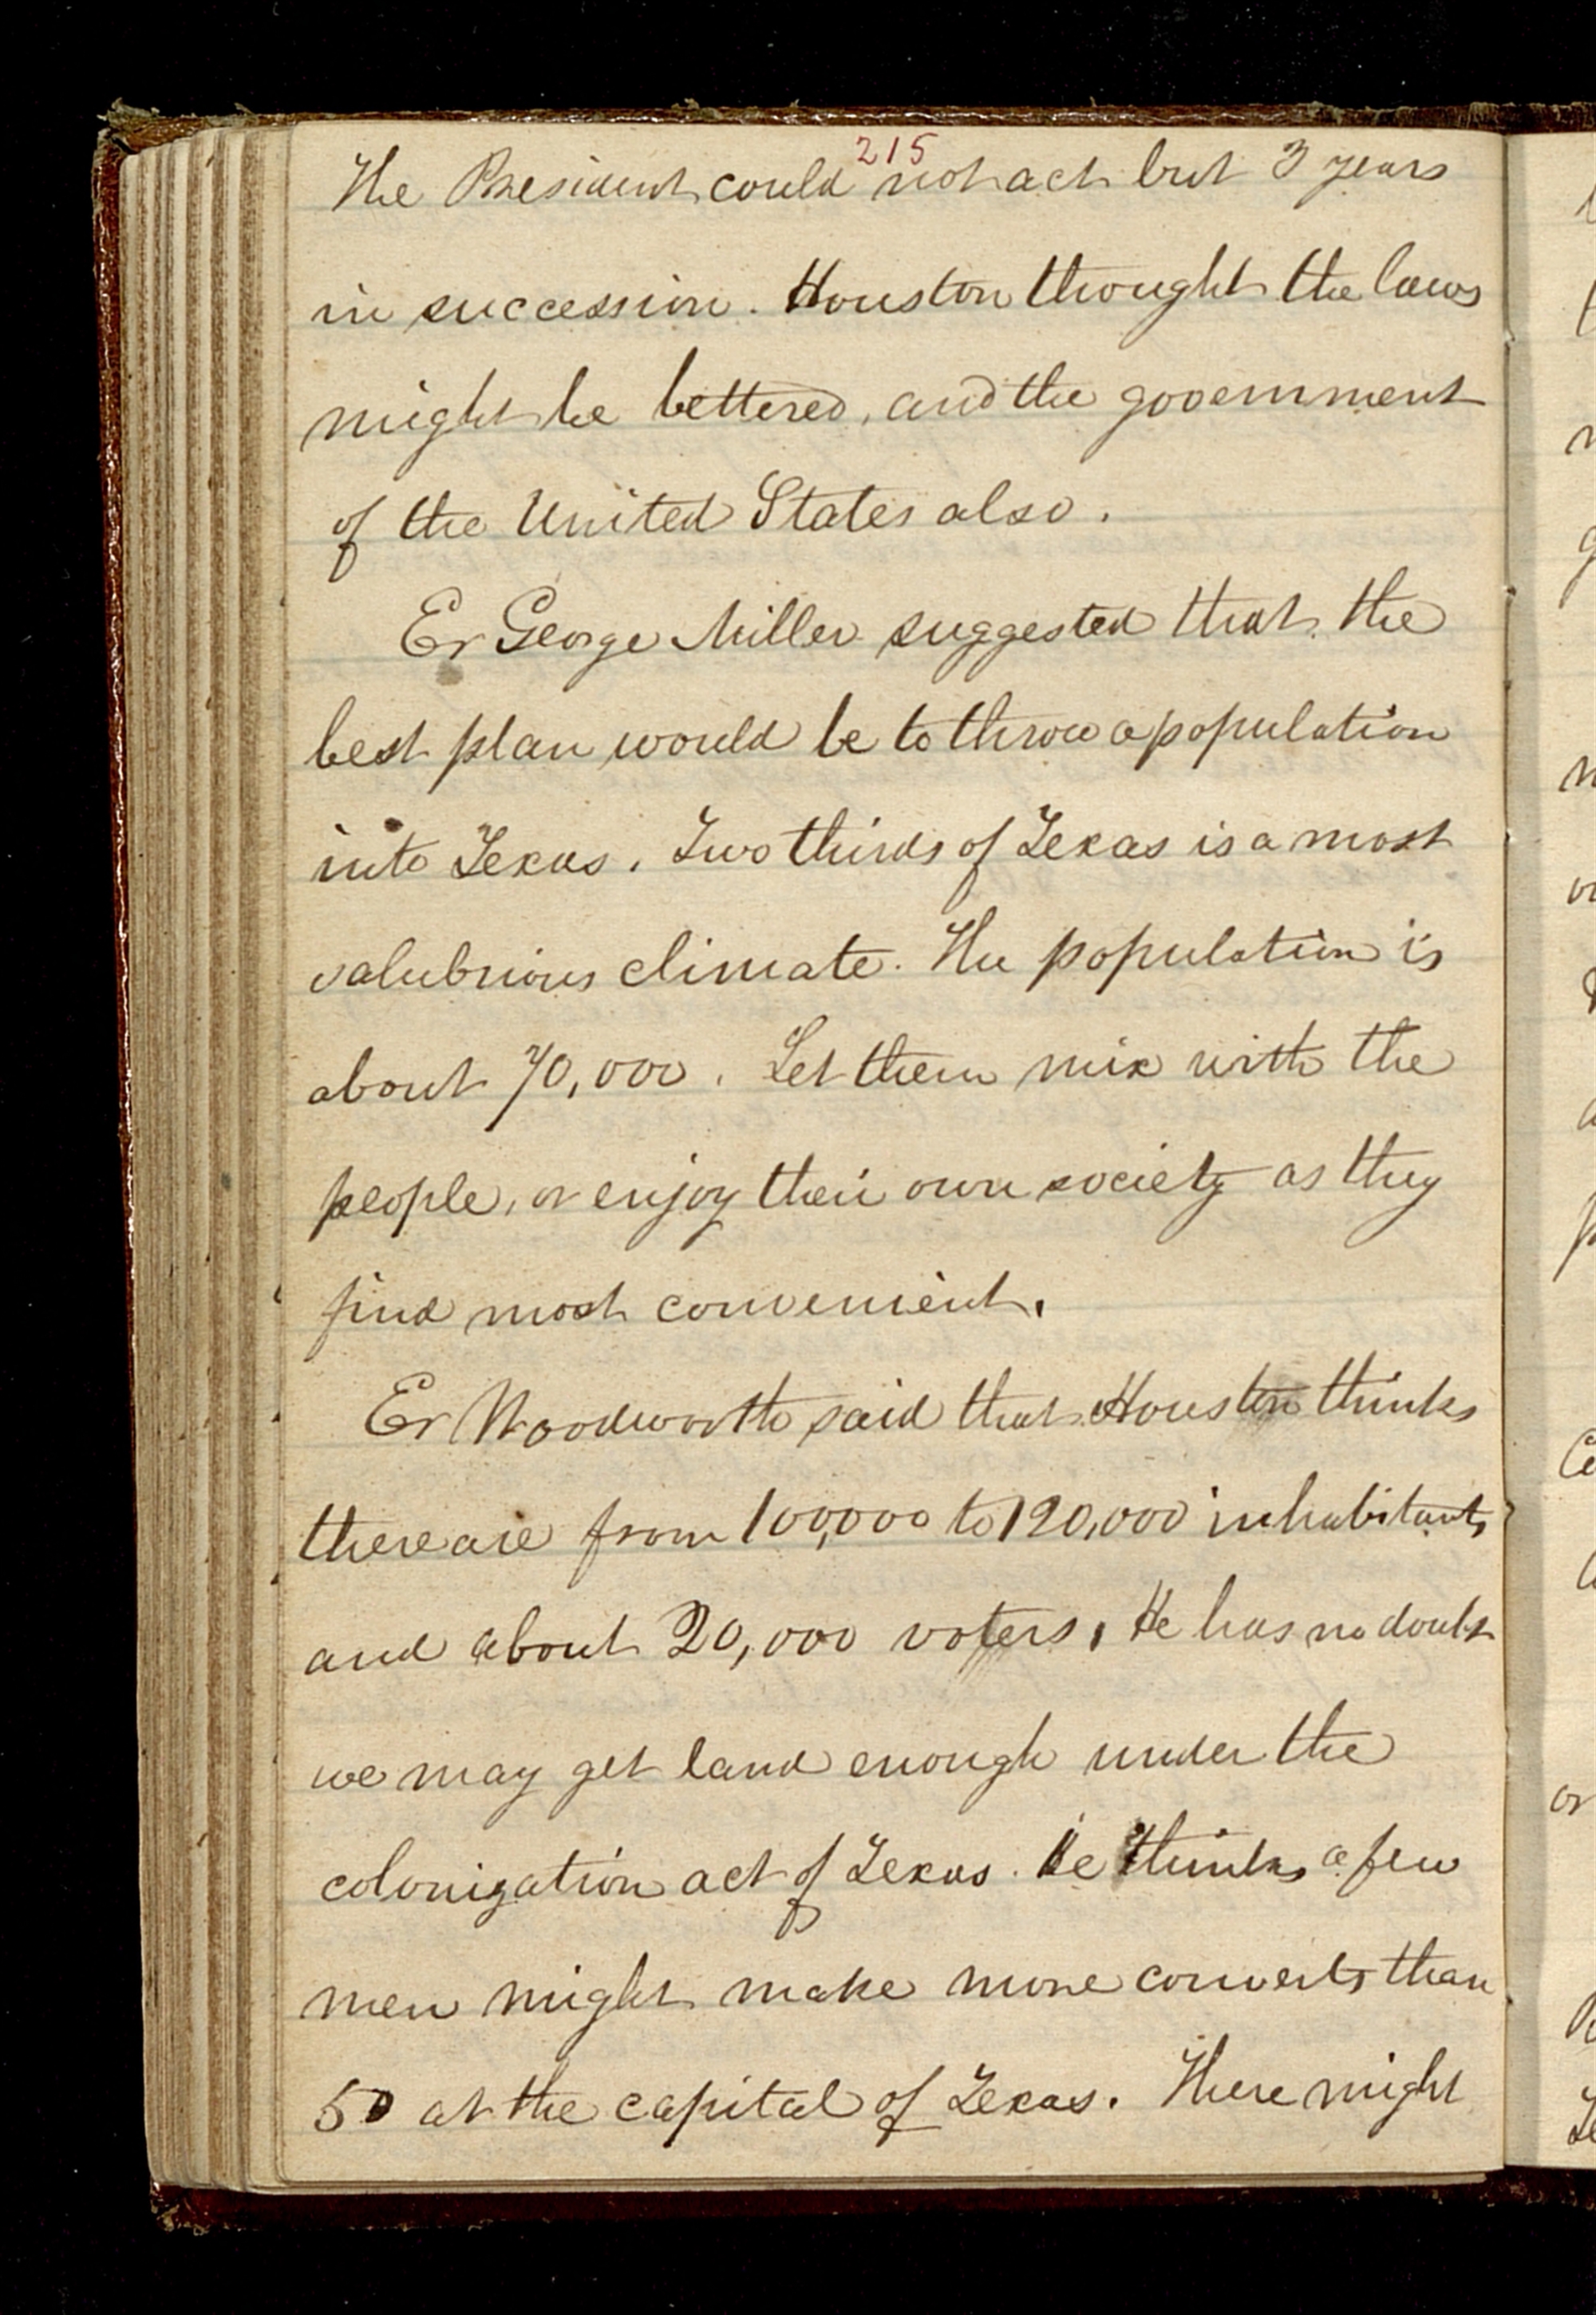 215
The President could not act but 3 years
in succession. Houston thought the laws
might be bettered, and the government
of the United States also.
Er George Miller suggested that the
best plan would be to throw a population
into Texas. Two thirds of Texas is a most
salubrious climate. The population is
about 70,000. Let them mix with the
people, or enjoy their own society as they
find most convenient.
Er Woodworth said that Houston thinks
there are from 100,000 to 120,000 inhabitants
and about 20,000 voters. He has no doubt
we may get land enough under the
colonization act of Texas. He thinks a few
men might make more converts than
50 at the capital of Texas. There might